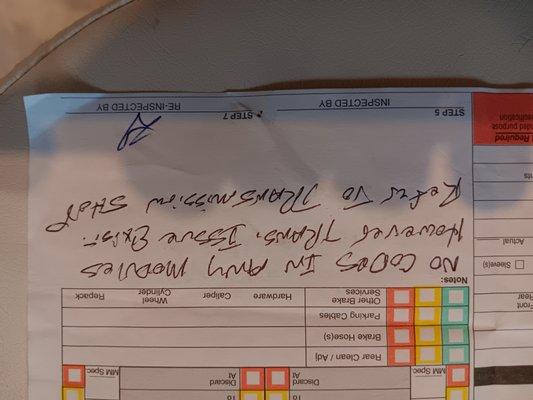 To
To
MM Spec
Discard At
Discard At
MM Spec
Rear Clean / Adj
Brake Hose(s)
Parking Cables
Other Brake Services
Hardware
Caliper
Wheel Cylinder
Repack
Notes:
NO CODES IN ANY MODULES
However TRANS. ISSUE EXIST.
Refer TO TRANSMISSION SHOP
STEP 5
INSPECTED BY
STEP 7
RE-INSPECTED BY
Front
Rear
Sleeve(s)
Actual
Required
purpose